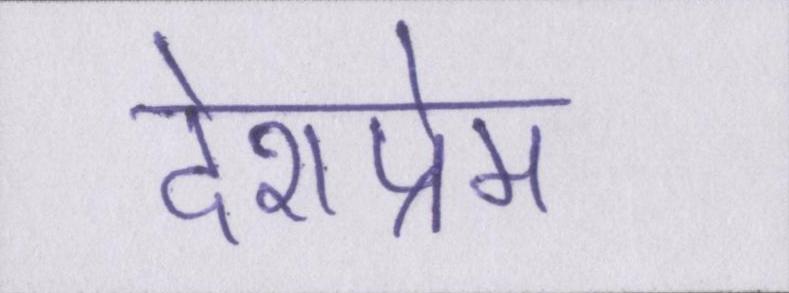 देशप्रेम